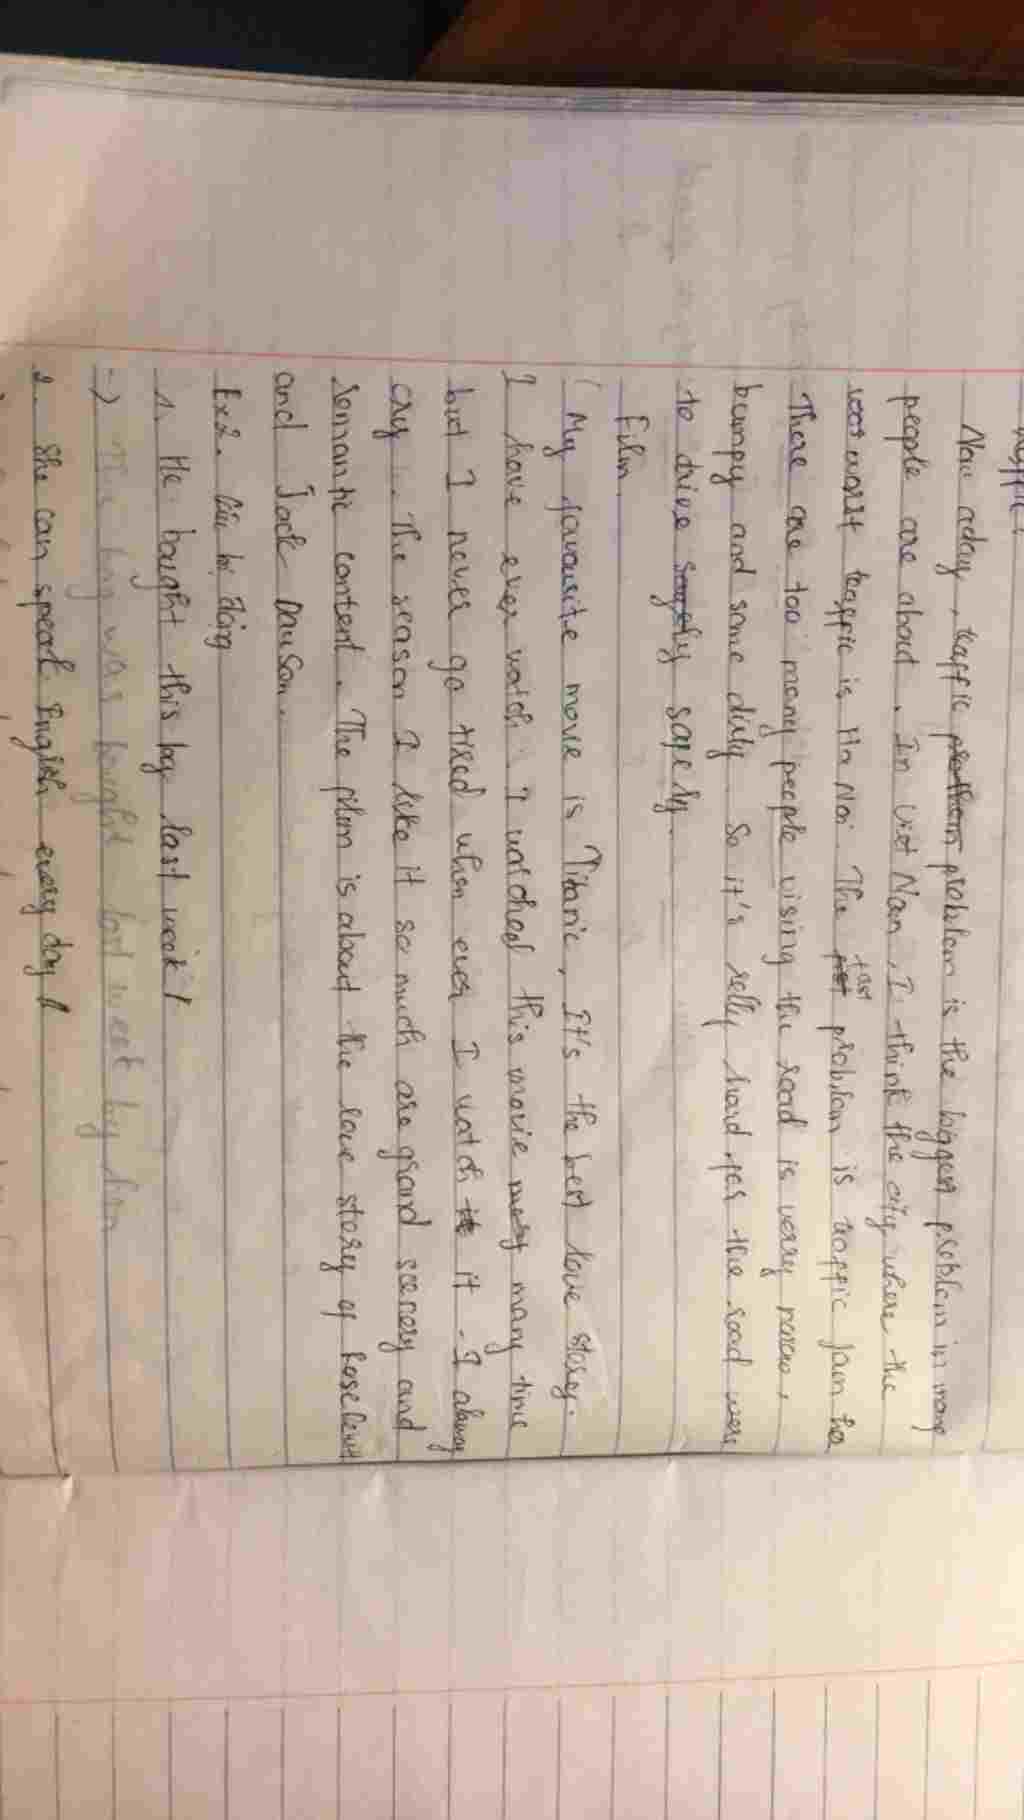 Traffic:
Now aday, traffic problem is the biggest problem in many
people are about. In Viet Nam, I think the city where the
worst traffic is Ha Noi. The problem is traffic jam
There are too many people vising the road is very narow,
bumpy and some dirty. So it's relly hard for the road were
to drive safely.
Film.
My favousite movie is Titanic, It's the best love story.
I have ever watch. I watched this movie many time
but I never go tired when ever I watch it. I alway
cry. The reason I like it so much are grand scenery and
romantic content. The film is about the love story of Rose
and Jack Dawson.
Ex2. Câu bị động
1. He bought this bag last week!
-> The bag was bought last week by him
2. She can speak English every day!